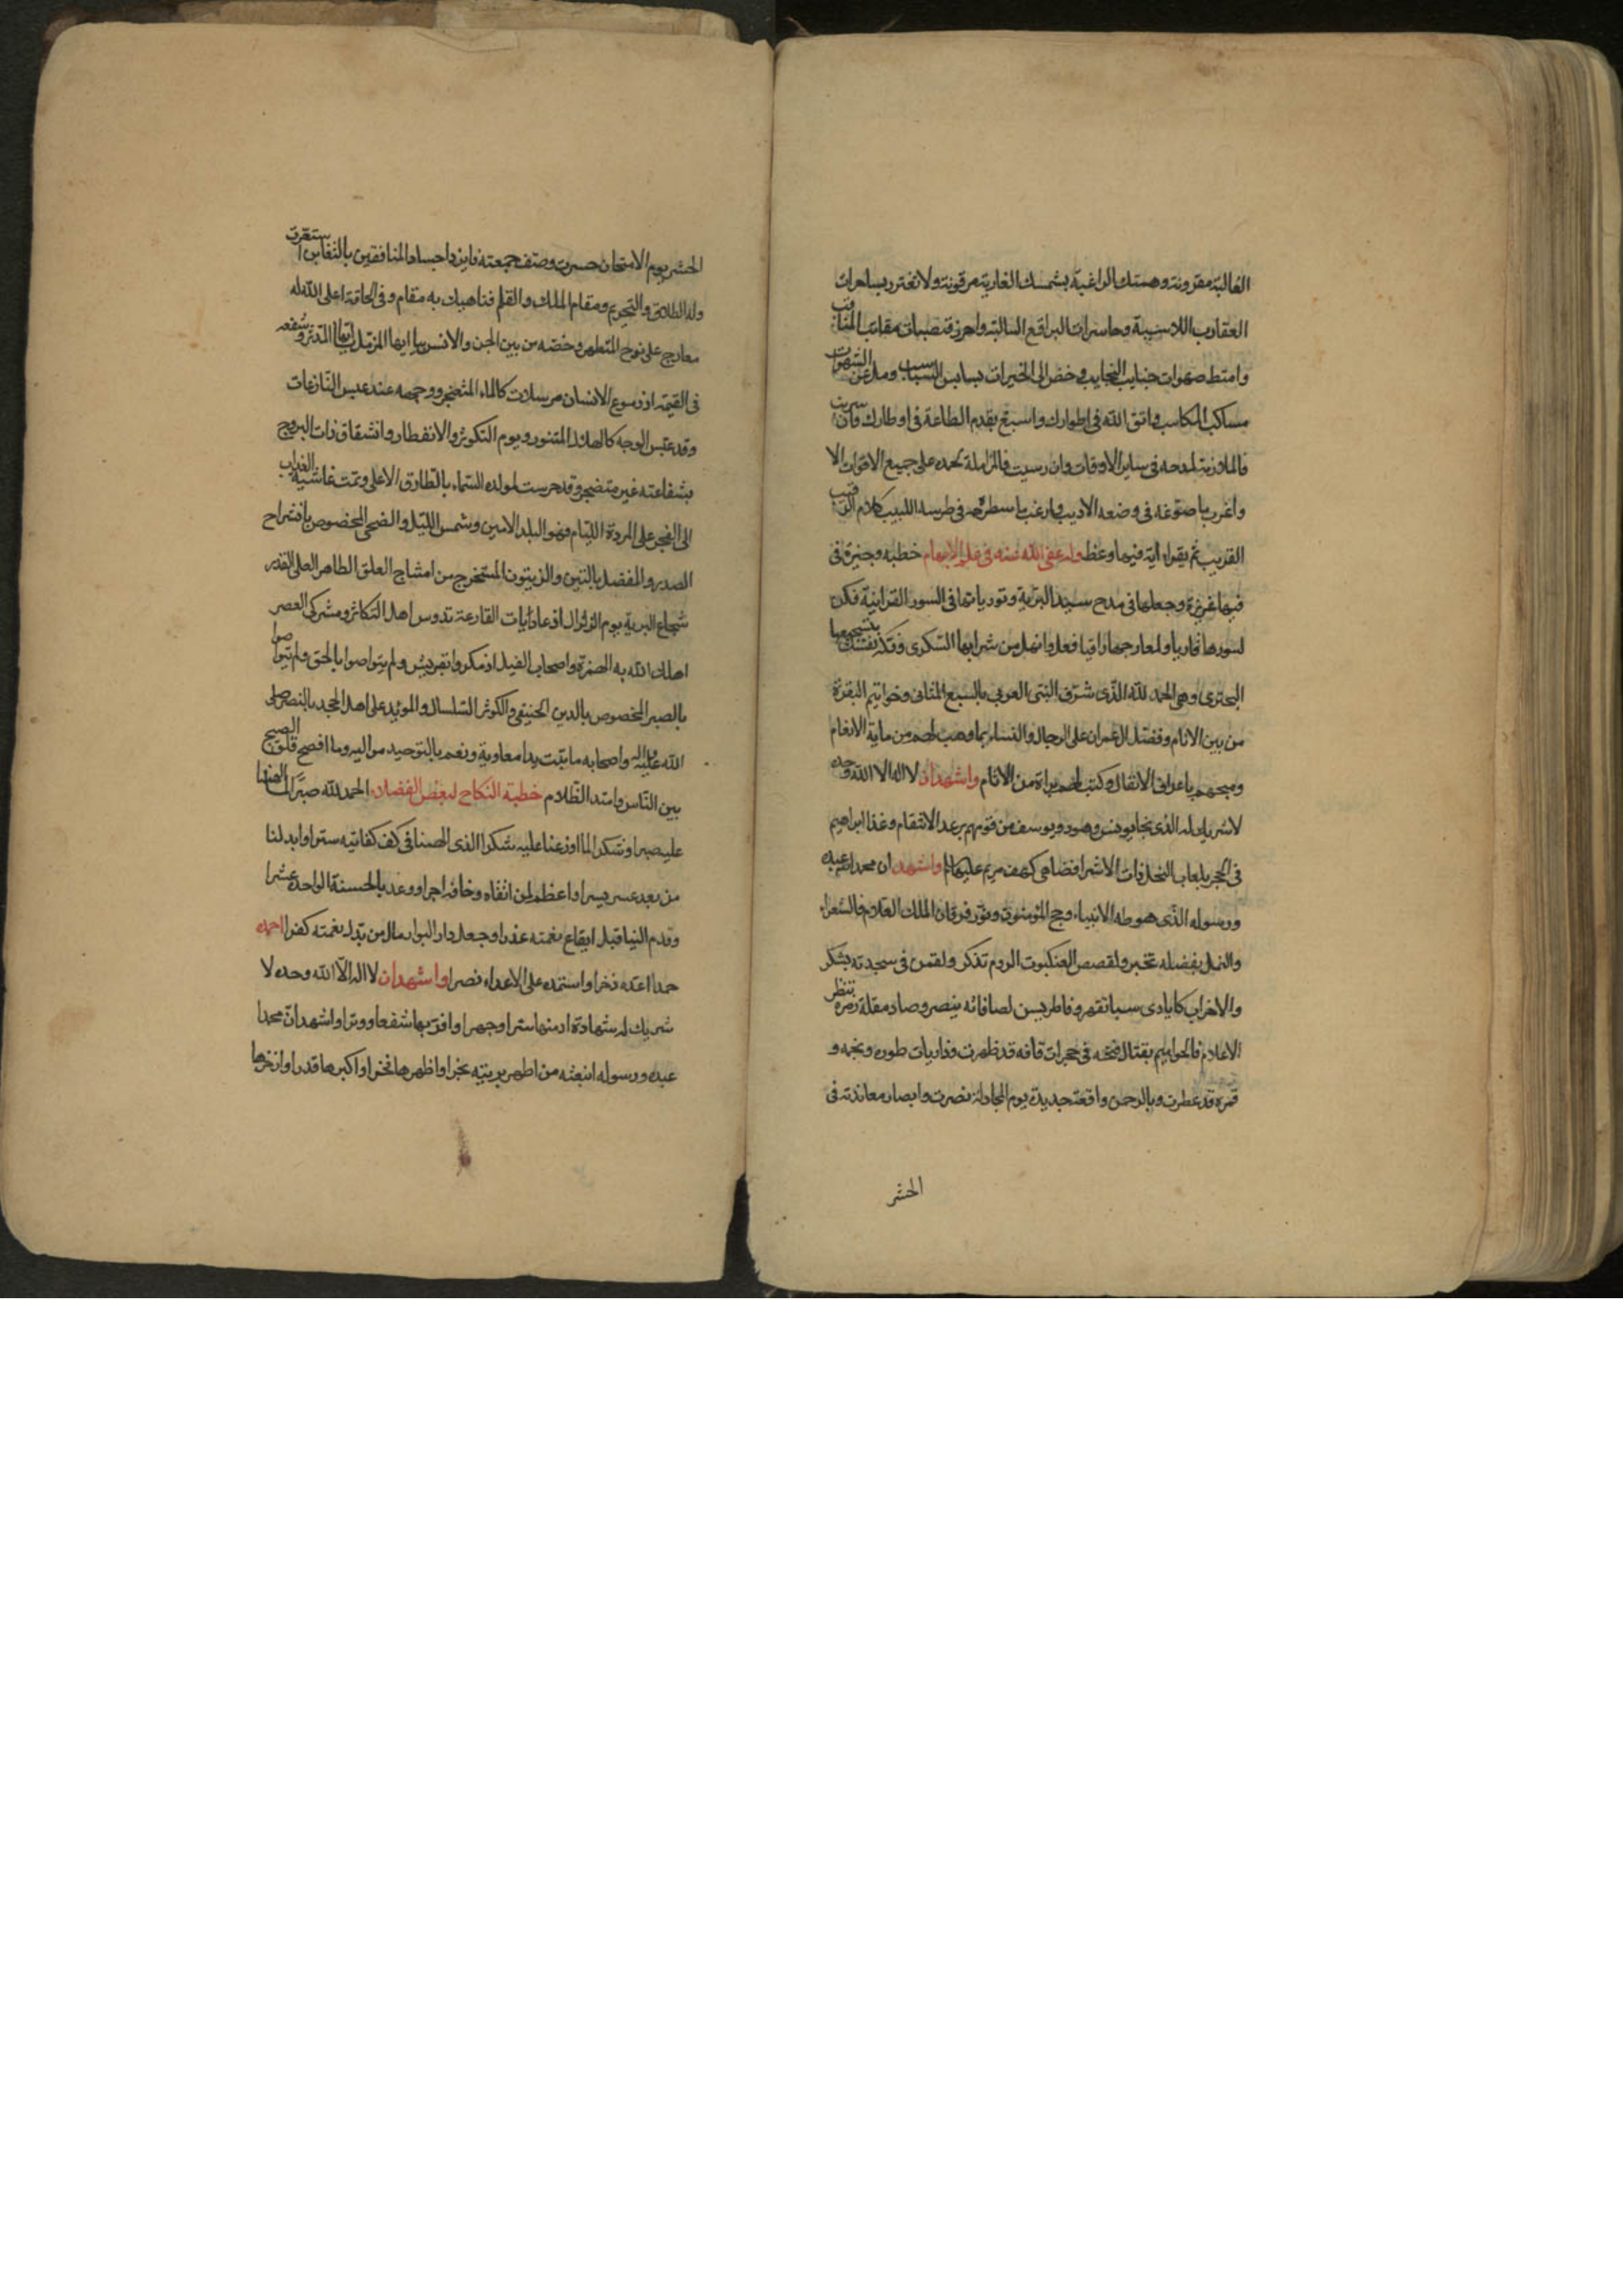 الغالبة مقرونة وهمتك الراغبة بشمسك الغاربة مرقونة ولا تغترر بساهرات
العقارب اللاسبة وحاسرات البراقع السالبة واحرز قصبات مقانب المناقب
وامتط صهوات جنايب النجايب وخض الى الخيرات بسابس السباسب ومل عن الشهوات
مساكب المكاسب واتق الله في اطوارك واسبغ بقدم الطاعة في اوطارك وان سريت
فالملازمة لمدحه في ساير الاوقات وان رسيت فالمزاملة بحمده على جميع الاقوات الا
واغرب ما صوغه في وضعه الاديب وارغب ما سطره في طرسه اللبيب كلام الرقيب
القريب ثم يقول اية فيها وعظ وله عفى الله عنه في علم الابهام خطبه وجيزة في
فيها غرة وجعلها في مدح سيد البرية وتورياتها في السور القرانية فكن
لسورها قاريا ولمعارجها راقيا فعل وانهل من شرابها السكرى وفكه نفسك بتسجيعها
البحترى وهي الحمد لله الذى شرف النبى العربي بالسبع المثانى وخواتيم البقرة
من بين الانام وفضل ال عمران على الرجال والنساء بما وهب لهم من ماية الانعام
ومنحهم باعراف الانفال وكتب لهم براة من الاثام واشهد ان لا اله الا الله وحده
لا شريك له الذى نجا يونس وهود ويوسف من قومهم برعد الانتقام وغذا ابراهيم
في الحجر بلعاب النحل ذات الاسرا فضاهى كهف مريم عليها السلام واشهد ان محمدا عبده
ورسوله الذى هو طه الانبياء وحج المؤمنون ونور فرقان الملك العلام فالشعراء
والنمل بفضله تخبر ولقصص العنكبوت الروم تذكر ولقمن في سجدته يشكر
والاحزاب كايادى سبا تقهر وفاطر يس لصافاته ينصر وصاد مقلة زمره تنظر
الاعلام فالحواميم بقتال فتحه في حجرات قافه قد ظهرت وذاريات طوره ونجمه و
قمره قد عطرت وبالرحمن واقعة حديده يوم المجادلة نصرت وابصار معاندته في
الحشر
الحشر يوم الامتحان حسرت وصف جمعته فايز واجساد المنافقين بالتغابن استعرت
وله الطلاق والتحريم ومقام الملك والقلم فناهيك به مقام وفي الحاقة اعلى الله له
معارج على نوح المتطهر وخصه من بين الجن والانس بيا ايها المزمل يا ايها المدثر وشفعه
في القيمة اذ دموع الانسان مرسلات كالماء المثعنجر ووجهه عند عبس النازعات
وقد عبس الوجه كالهلال المتنور ويوم التكوير والانفطار وانشقاق ذات البروج
بشفاعته غير متضجر وقد حرست لمولده السماء بالطارق الاعلى وتمت غاشية العذاب
الى الفجر على المردة اللئام فهو البلد الامين وشمس الليل والضحى المخصوص بانشراح
الصدر والمفضل بالتين والزيتون المستخرج من امشاج العلق الطاهر العلى القدر
شجاع البرية يوم الزلزال اذ عاديات القارعة تدوس اهل التكاثر ومشركى العصر
اهلك الله به الهمزة واصحاب الفيل اذ مكروا بقريش ولم يتواصوا بالحق ولم يتواصوا
بالصبر المخصوص بالدين الحنيفى والكوثر السلسال والمويد على اهل الجحد بالنصر صلى
الله عليه واله واصحابه ما تبت يدا معاوية ونعم بالتوحيد مواليه وما افصح فلق الصبح
بين الناس وامتد الظلام خطبة النكاح لبعض الفضلاء الحمد لله صبرا لما الهمنا
عليه صبرا وشكرا لما اوزعنا عليه شكرا الذى الحفنا في كنف كفايته سترا وابدلنا
من بعد عسر يسرا واعظم لمن اتقاه وخافه اجرا ووعد بالحسنة الواحدة عشرا
وقدم الينا قبل ايقاع نقمته عذرا وجعل دار البوار مال من بدل نعمته كفرا احمده
حمدا اعده ذخرا واستمده على الاعداء نصرا واشهد ان لا اله الا الله وحده لا
شريك له شهادة ادمنها سترا وجهرا وافوز بها شفعا ووترا واشهد ان محمدا
عبده ورسوله ابتعثه من اطهر بريته نجرا واظهرها فخرا واكبرها قدرا واذخرها